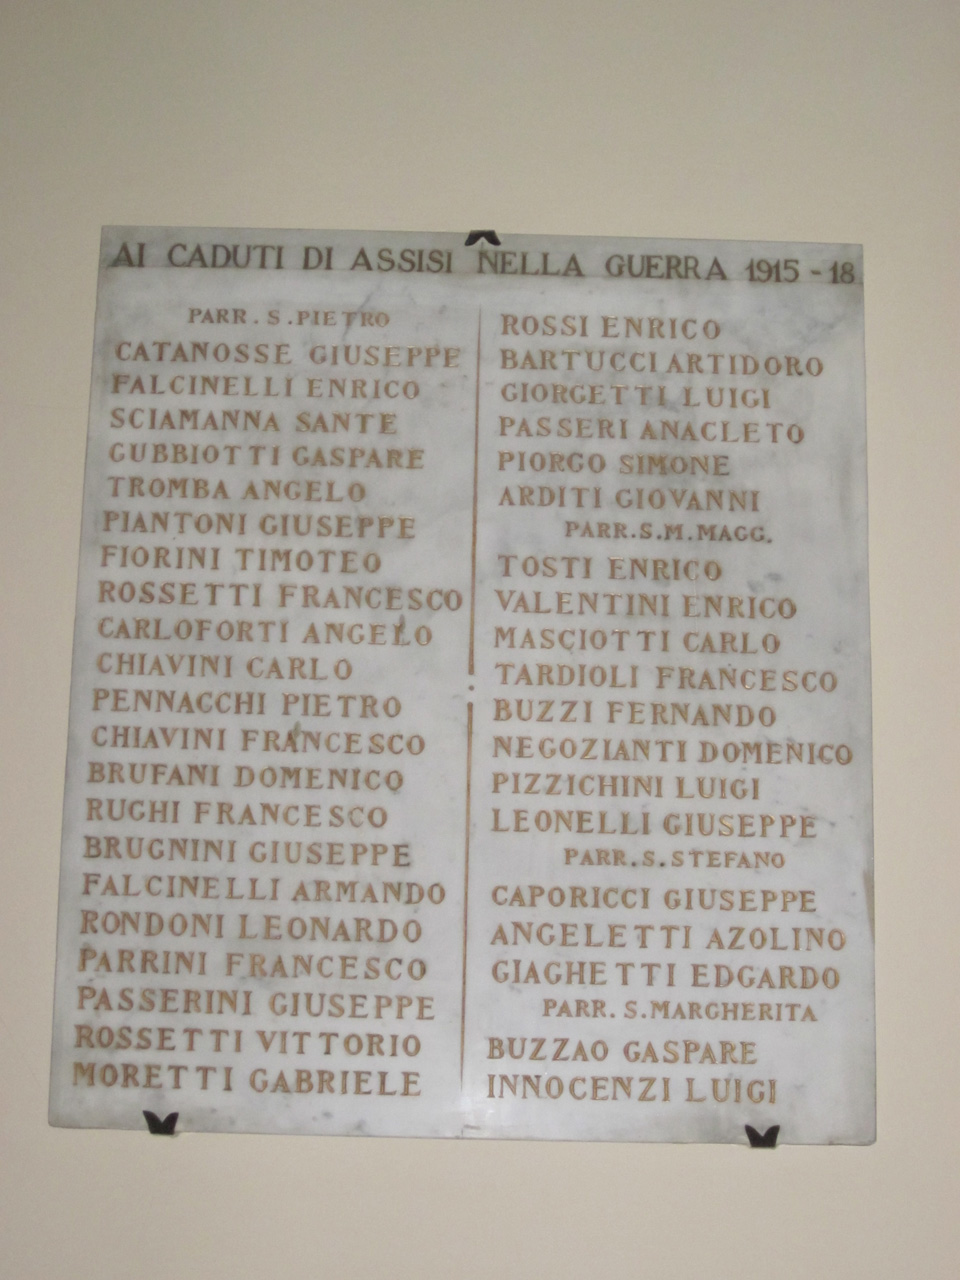 AI CADUTI DI ASSISI NELLA GUERRA 1915 - 18
PARR. S. PIETRO
CATANOSSE GIUSEPPE
FALCINELLI ENRICO
SCIAMANNA SANTE
GUBBIOTTI GASPARE
TROMBA ANGELO
PIANTONI GIUSEPPE
FIORINI TIMOTEO
ROSSETTI FRANCESCO
CARLOFORTI ANGELO
CHIAVINI CARLO
PENNACCHI PIETRO
CHIAVINI FRANCESCO
BRUFANI DOMENICO
RUGHI FRANCESCO
BRUGNINI GIUSEPPE
FALCINELLI ARMANDO
RONDONI LEONARDO
PARRINI FRANCESCO
PASSERINI GIUSEPPE
ROSSETTI VITTORIO
MORETTI GABRIELE
ROSSI ENRICO
BARTUCCI ARTIDORO
GIORGETTI LUIGI
PASSERI ANACLETO
PIORGO SIMONE
ARDITI GIOVANNI
PARR. S. M. MAGG.
TOSTI ENRICO
VALENTINI ENRICO
MASCIOTTI CARLO
TARDIOLI FRANCESCO
BUZZI FERNANDO
NEGOZIANTI DOMENICO
PIZZICHINI LUIGI
LEONELLI GIUSEPPE
PARR. S. STEFANO
CAPORICCI GIUSEPPE
ANGELETTI AZOLINO
GIAGHETTI EDGARDO
PARR. S. MARGHERITA
BUZZAO GASPARE
INNOCENZI LUIGI